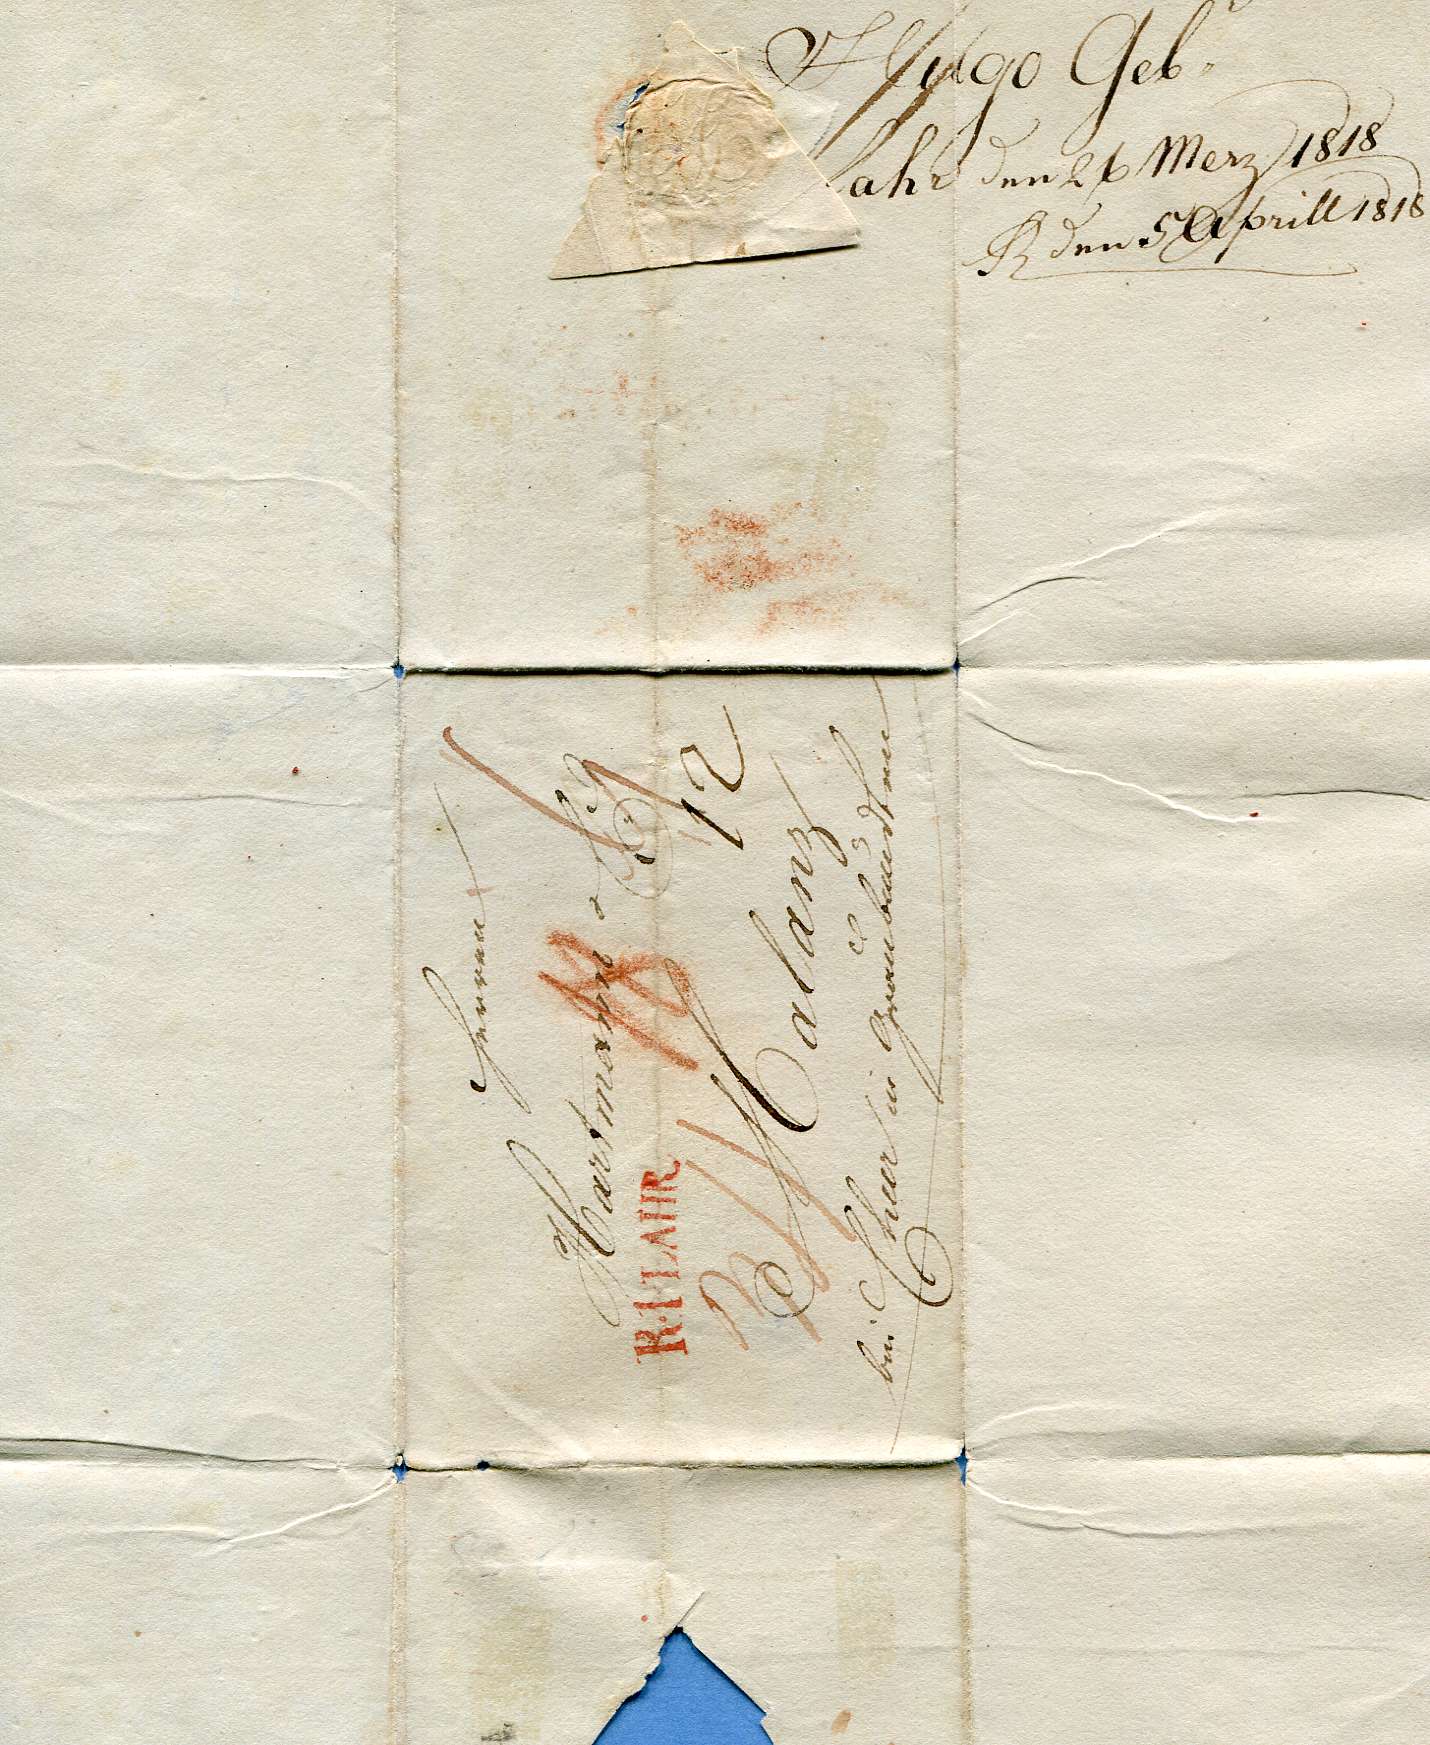 Hugo Geb.r
Lahr den 26 Merz 1818
R den 5 Aprill 1818
Herren
Hartmann &
12
R.1. LAHR
Malanz
bei Chur in Graubündten